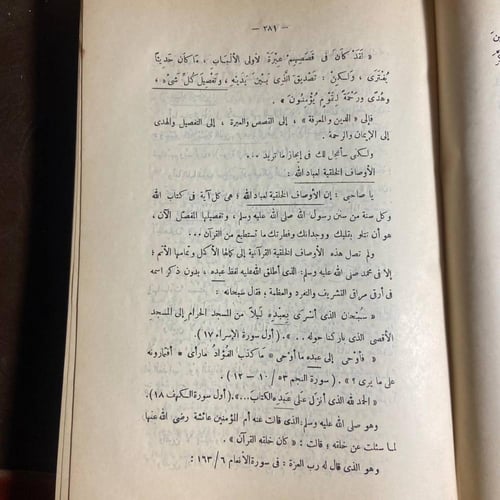 — ٢٨١ —
« لَقَدْ كَانَ فِى قَصَصِهِمْ عِبْرَةٌ لأُولِى الأَلْبَابِ ، مَا كَانَ حَدِيثًا
يُفْتَرَى ، وَلَـكِنْ : تَصْدِيقَ الَّذِى بَيْنَ يَدَيْهِ ، وَتَفْصِيلَ كُلِّ شَىْءٍ ،
وَهُدًى وَرَحْمَةً لِقَوْمٍ يُؤْمِنُونَ » .
فإلى « الدين والمعرفة » ، إلى القصص والعبرة ، إلى التفصيل والهدى
إلى الإيمان والرحمة .
ولكنى سأعجل لك فى إيجاز ما تريد ...
الأوصاف الخلقية لعباد الله :
يا صاحبى : إن الأوصاف الخلقية لعباد الله ؛ هى كل آية فى كتاب الله
وكل سنة من سنن رسول الله صلى الله عليه وسلم ، وتفصيلها المفصل الآن ،
هو أن تتلو بقلبك ووجدانك وفطرتك ما تستطيع من القرآن ...
ولم تصل هذه الأوصاف الخلقية القرآنية إلى كمالها الأكمل وتمامها الأتم ؛
إلا فى محمد صلى الله عليه وسلم ؛ الذى أطلق الله عليه لفظ عبده ، بدون ذكر اسمه
فى أرقى مراقى التشريف والتفرد والعظمة ، فقال سبحانه :
« سُبْحَانَ الذى أَسْرَى بِعَبْدِهِ لَيْلاً من المسجد الحرامِ إلى المسجد
الأقصى الذى باركنا حوله .. » . ( أول سورة الإسراء ١٧ ) .
« فأَوْحَى إلى عبده ما أَوْحَى * ما كذبَ الفُؤَادُ مارأى * أفتمارونه
على ما يرى ؟ » . ( سورة النجم ٥٣ / ١٠ – ١٢ ) .
« الحمد لله الذى أنزل على عَبْدِهِ الكتاب ... » . ( أول سورة الكهف ١٨ ) .
وهو صلى الله عليه وسلم ؛ الذى قالت عنه أم المؤمنين عائشة رضى الله عنها
لما سئلت عن خلقه ؛ قالت : « كان خلقه القرآن » .
وهو الذى قال له رب العزة : فى سورة الأنعام ٦ / ١٦٣ :